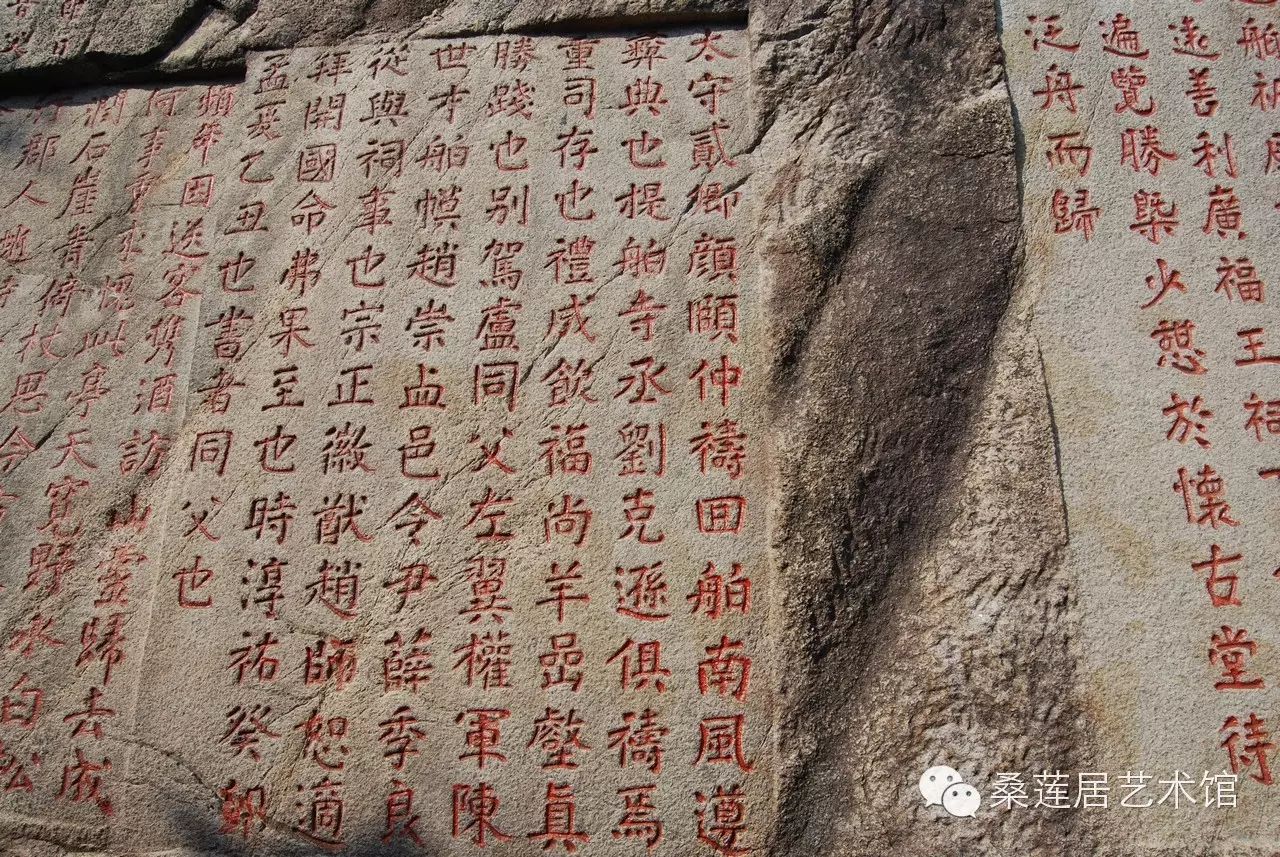 舶祈風
遠善利廣福王祠下
遍覽勝槩火憇於懷古堂待
泛舟而歸
太守貳卿顏頤仲禱回舶南風遵
彝典也提舶寺丞劉克遜俱禱焉
重司存也禮成飲福尚羊喦壑真
勝踐也别駕盧同父左翼權軍陳
世才舶幙趙崇邑令尹薛季良
從與祠事也宗正徽猷趙師恕適
拜開國命弗果至也時淳祐癸卯
孟夏乙丑也書者同父也
頻年因送客携酒訪山靈歸去成
何事重來愧此亭天寬野水白松
澗石崖青倚杖思今古
郡人
桑莲居艺术馆